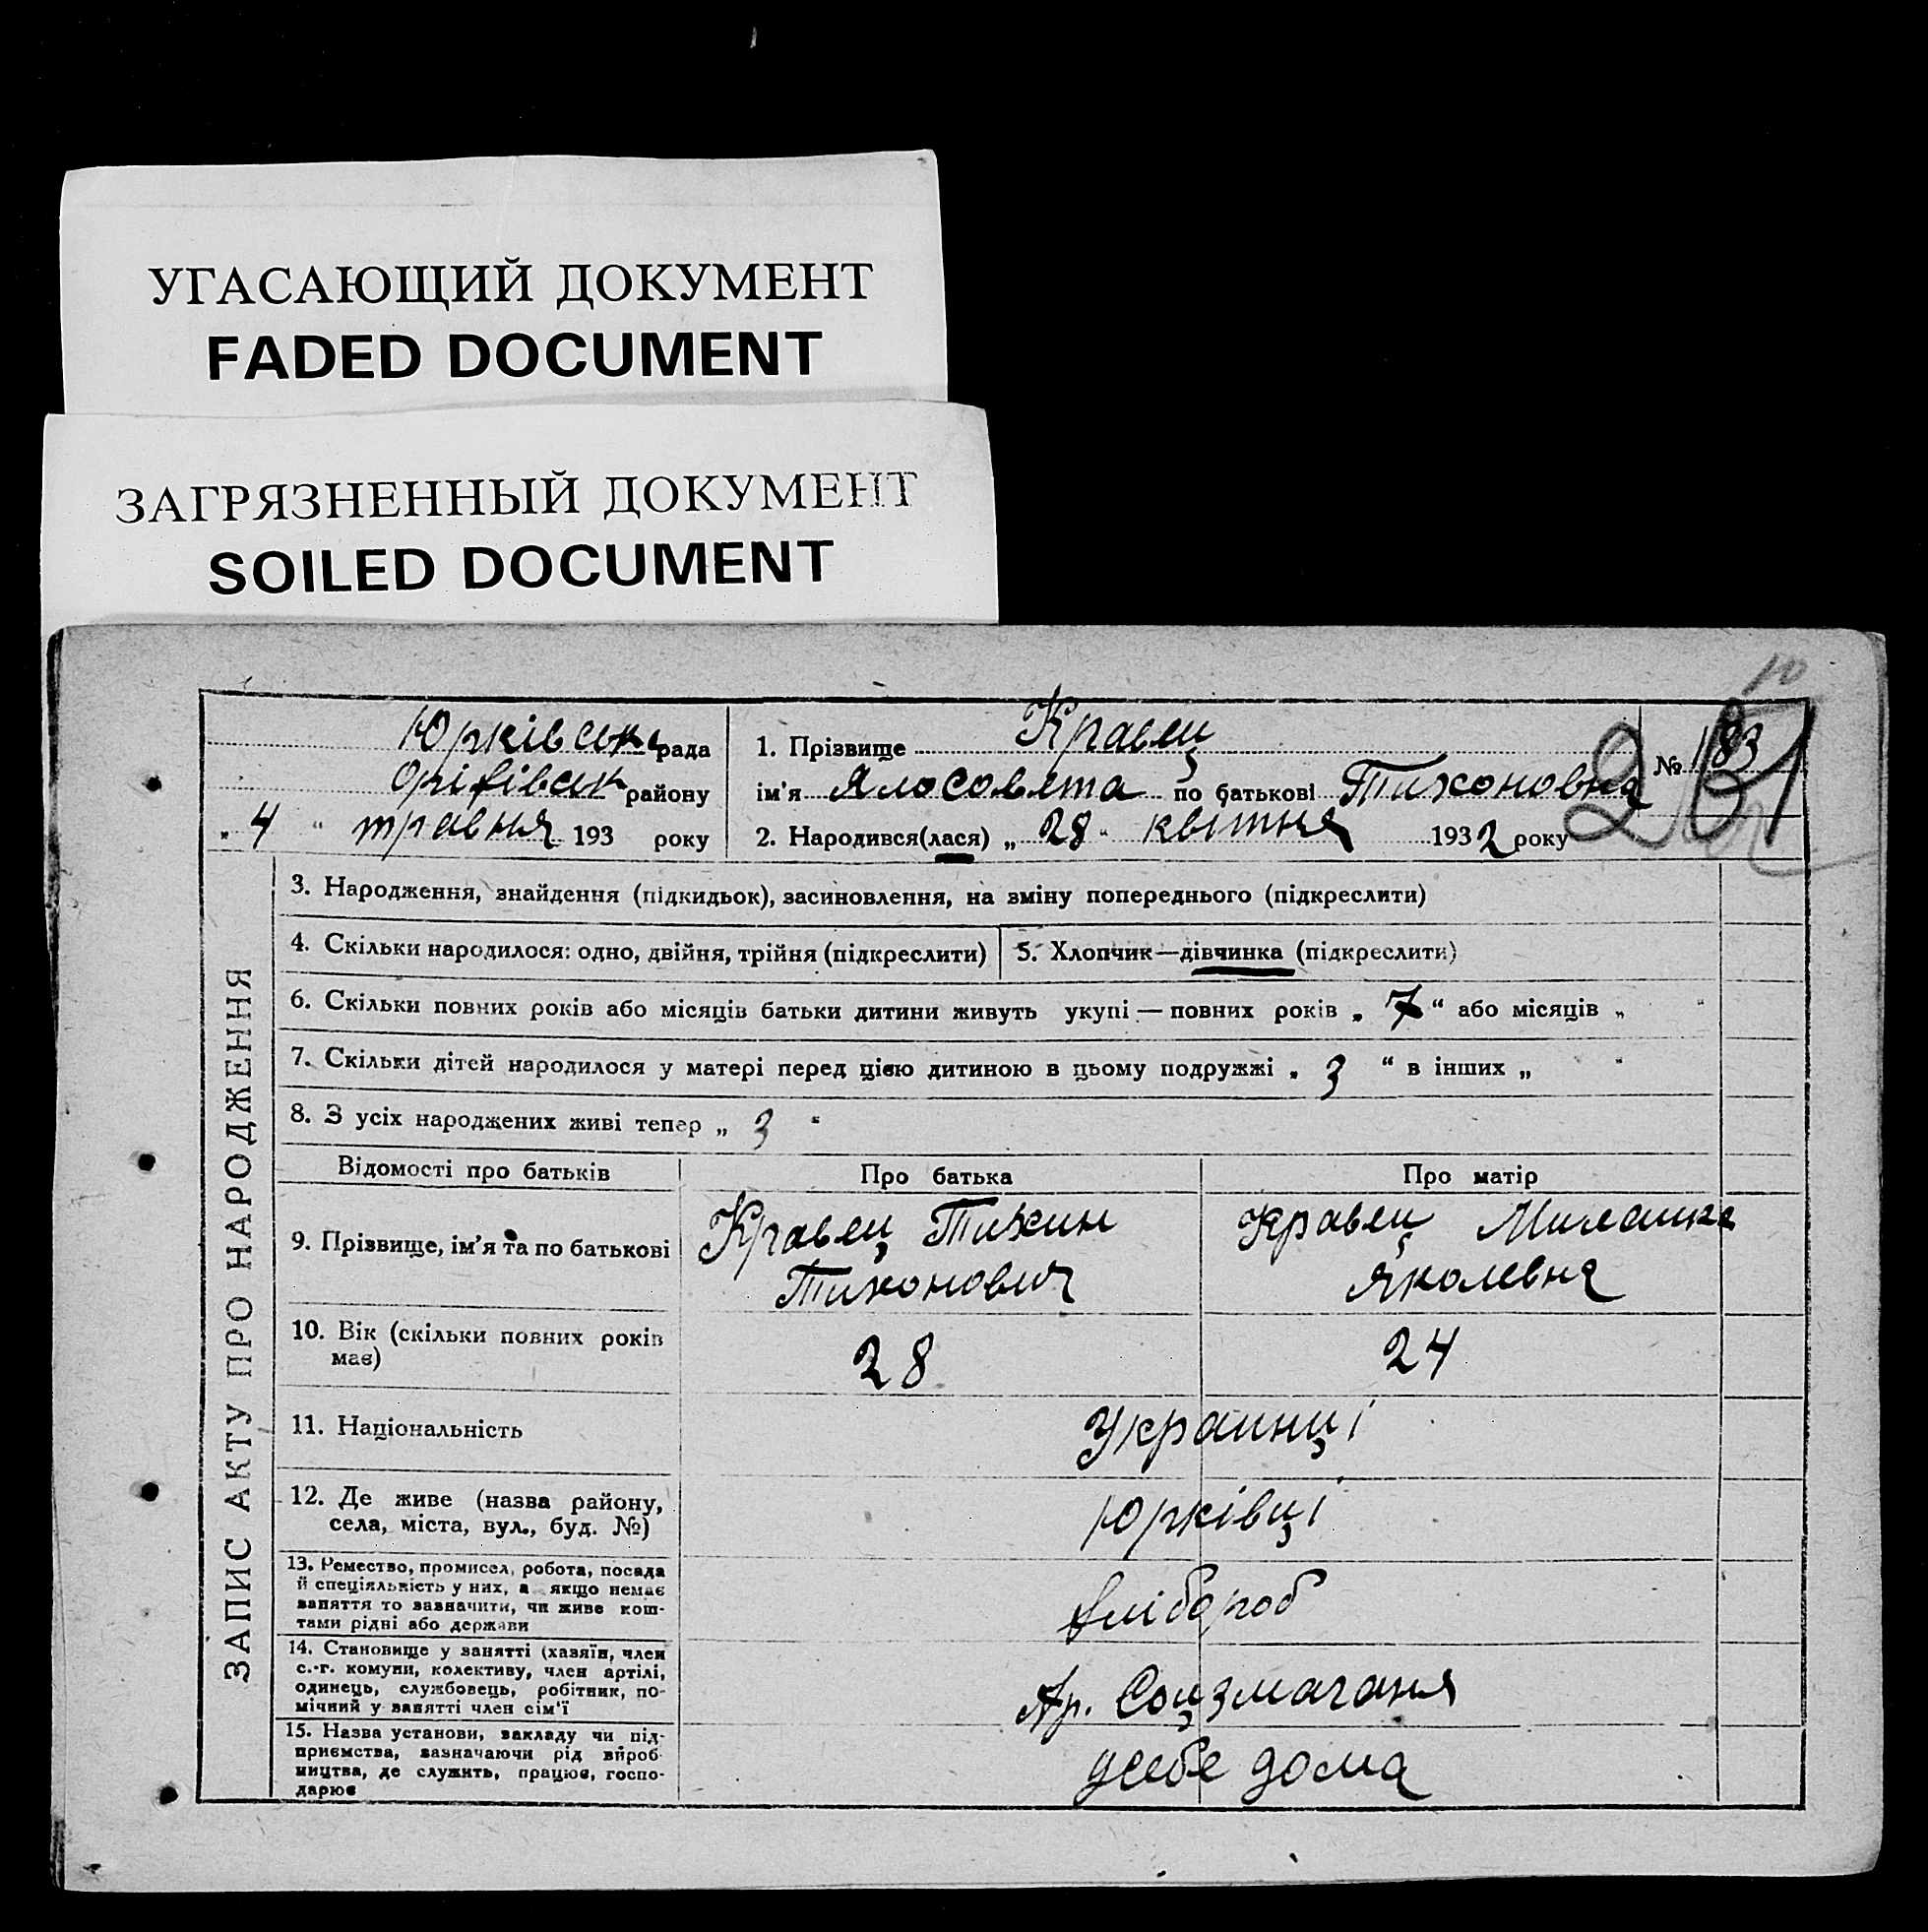 УГАСАЮЩИЙ ДОКУМЕНТ
FADED DOCUMENT
ЗАГРЯЗНЕННЫЙ ДОКУМЕНТ
SOILED DOCUMENT
Юрківська рада
району
„ 4 “ травня 193 року
1. Прізвище Кравец
ім'я по батькові Тихоновна
2. Народився(лася) „ 28 “ квітня 1932 року
№ 183
ЗАПИС АКТУ ПРО НАРОДЖЕННЯ
3. Народження, знайдення (підкидьок), засиновлення, на зміну попереднього (підкреслити)
4. Скільки народилося: одно, двійня, трійня (підкреслити)
5. Хлопчик—дівчинка (підкреслити)
6. Скільки повних років або місяців батьки дитини живуть укупі — повних років „ 7 “ або місяців „ “
7. Скільки дітей народилося у матері перед цією дитиною в цьому подружжі „ 3 “ в інших „ “
8. З усіх народжених живі тепер „ 3 “
Відомості про батьків
Про батька
Про матір
9. Прізвище, ім'я та по батькові
Кравец Тихин
Тихонович
Кравец
Яколевна
10. Вік (скільки повних років
має)
28
24
11. Національність
Украинці
12. Де живе (назва району,
села, міста, вул., буд. №)
Юрківці
13. Ремество, промисел, робота, посада
й спеціяльність у них, а якщо немає
заняття то зазначити, чи живе кош-
тами рідні або держави
хлібороб
14. Становище у занятті (хазяїн, член
с.-г. комуни, колективу, член артілі,
одинець, службовець, робітник, по-
мічний у занятті член сім'ї
Ар. Соцзмаганя
15. Назва установи, закладу чи під-
приємства, зазначаючи рід вироб-
ництва, де служить, працює, госпо-
дарює
усебе дома